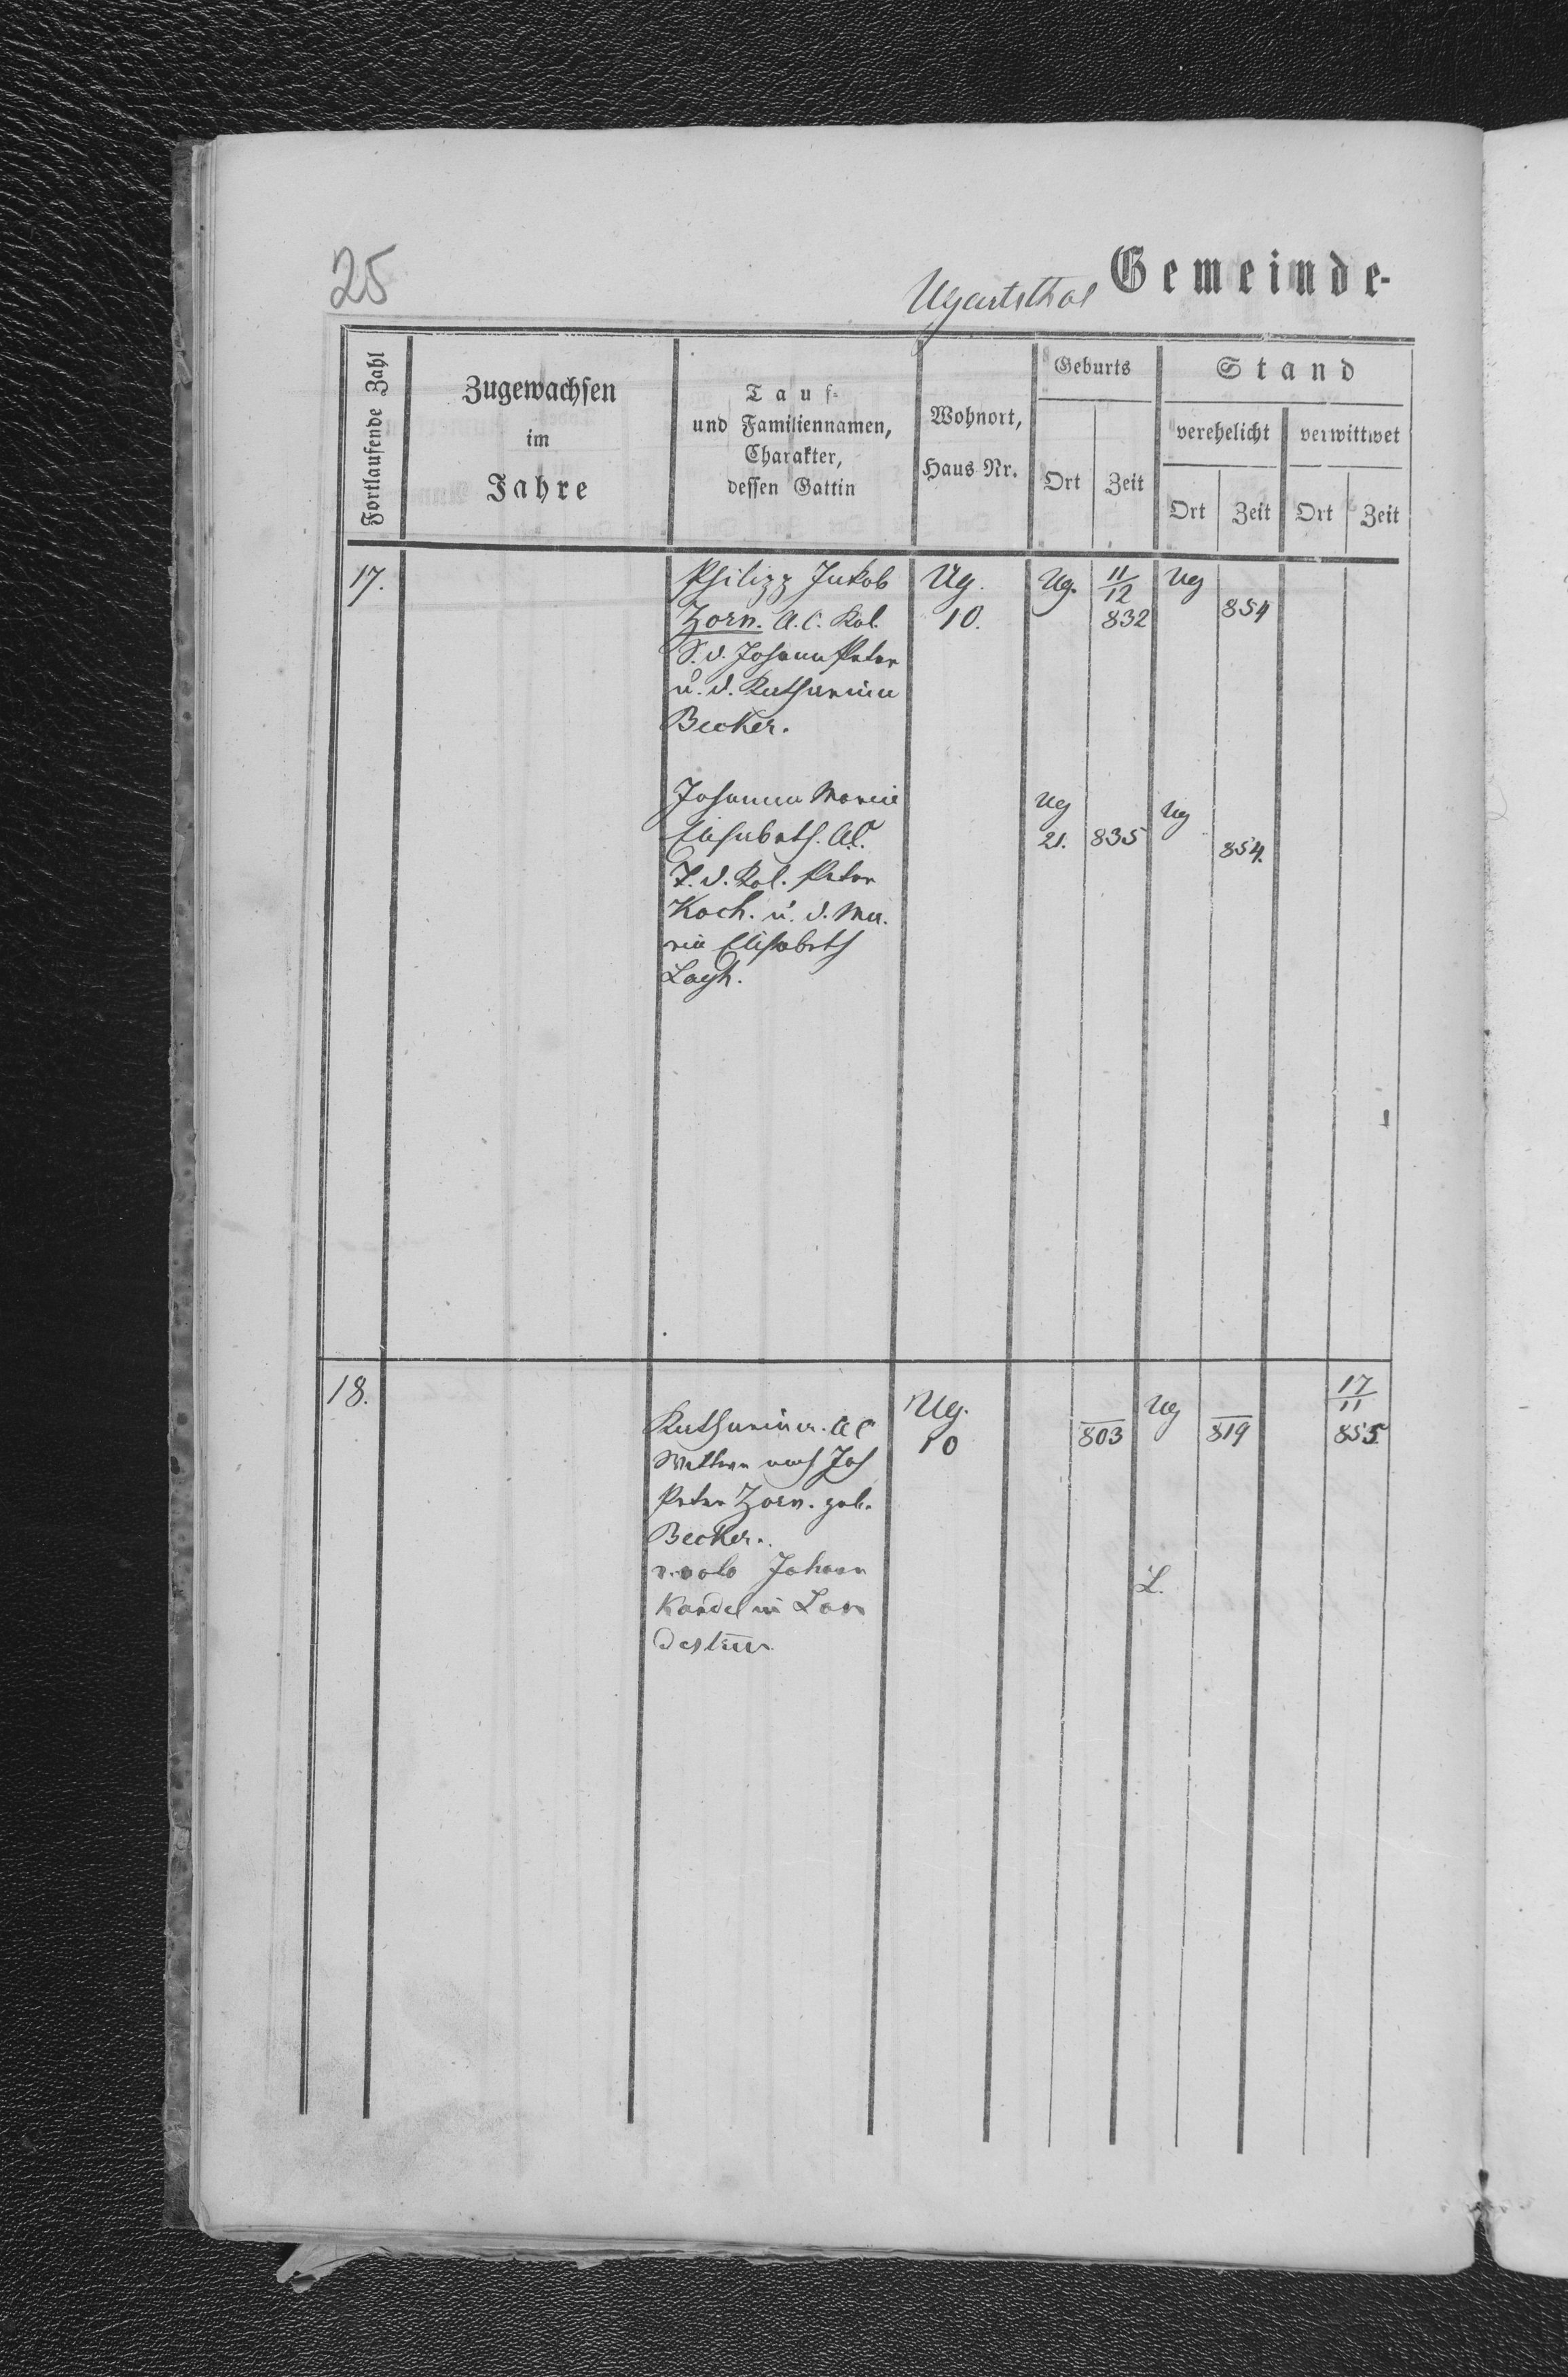 25
Ugartsthal Gemeinde-
Fortlaufende Zahl
Zugewachsen
im
Jahre
Tauf-
und Familiennamen,
Charakter,
dessen Gattin
Wohnort,
Haus Nr.
Geburts
Ort Zeit
Stand
verehelicht verwittwet
Ort Zeit Ort Zeit
17. Philipp Jakob Ug. Ug. 11/12 Ug
Zorn. A.C. Kol. 10. 832 854
S. d. Johann Peter
u. d. Katharina
Becker.
Johanna Maria Ug Ug
Elisabeth. A.C. 21. 835 854.
T. d. Kol. Peter
Koch. u. d. Ma-
ria Elisabeth
18. Ug. Ug 17/11
Katharina. AC 10 803 819 855
Wittwe nach Joh
Peter Zorn. geb.
Becker.
Johann L.
Kandel in Lan
destreu